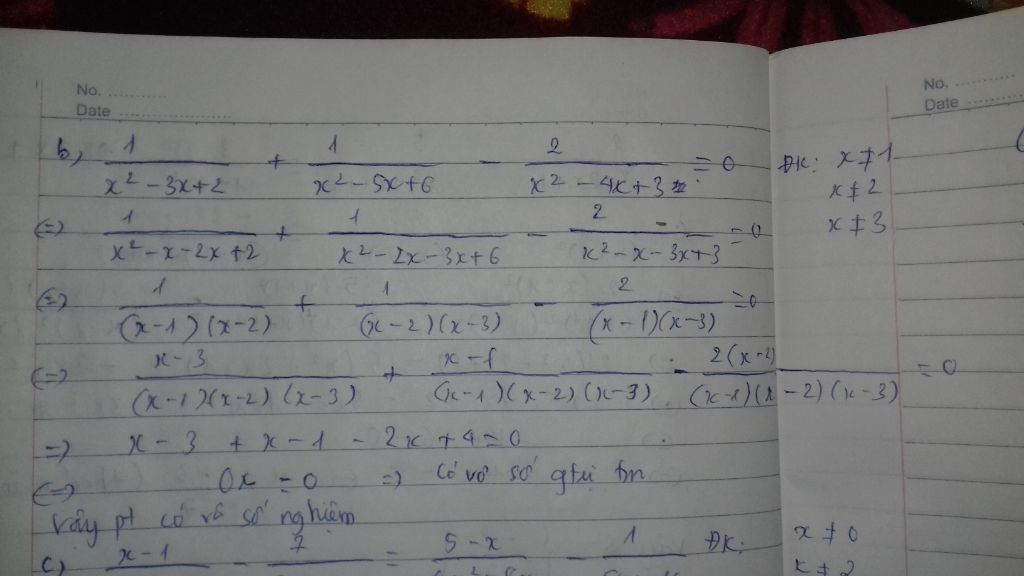 No. ............
Date ......................
No. ............
Date ............
b, 1/(x² - 3x + 2) + 1/(x² - 5x + 6) - 2/(x² - 4x + 3) = 0 ĐK: x ≠ 1
x ≠ 2
(=) 1/(x² - x - 2x + 2) + 1/(x² - 2x - 3x + 6) - 2/(x² - x - 3x + 3) = 0 x ≠ 3
(=) 1/((x-1)(x-2)) + 1/((x-2)(x-3)) - 2/((x-1)(x-3)) = 0
(=) (x-3)/((x-1)(x-2)(x-3)) + (x-1)/((x-1)(x-2)(x-3)) - 2(x-2)/((x-1)(x-2)(x-3)) = 0
=) x - 3 + x - 1 - 2x + 4 = 0
(=) 0x = 0 =) Có vô số gtrị tm
Vậy pt có vô số nghiệm
c) x-1 - 7 = 5-x - 1 ĐK: x ≠ 0
x ≠ 2